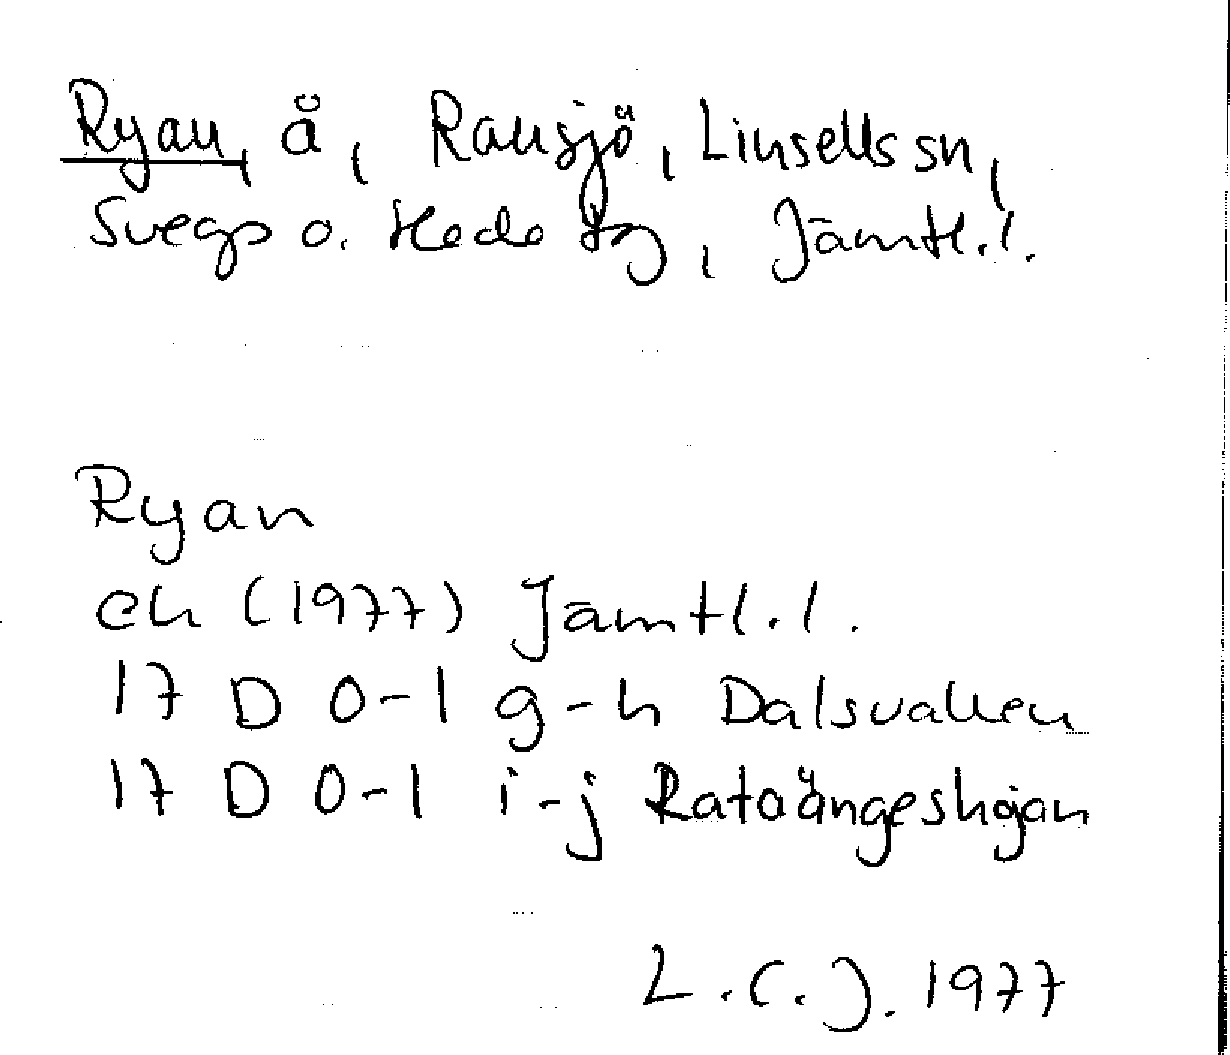 Ryan, å, Ransjö, Linsells sn,
Svegs o. Hede tg, Jämtl. l.
Ryan
ek (1977) Jämtl. l.
17 D 0-1 g-h Dalsvallen
17 D 0-1 i-j Rataängeshöjan
L.C.J. 1977